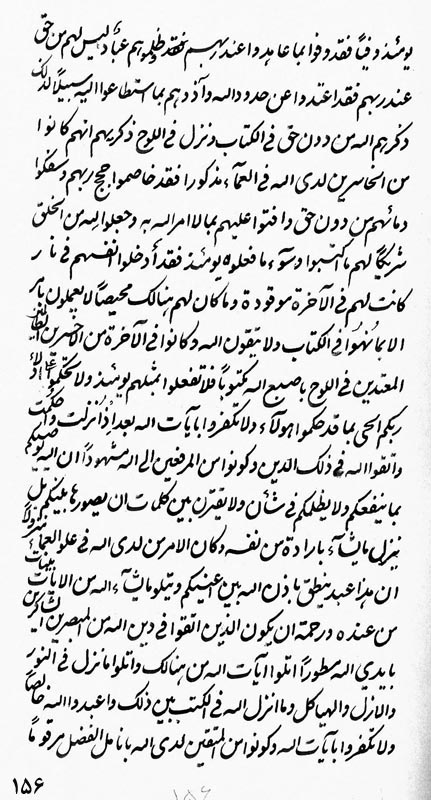 يومئذ وفيا فقد وفوا بما عاهدوا عند ربهم فقد ظلوا هم عباد ليس لهم من حق
عند ربهم فقد اعتدوا عن حدود الله وآذوهم بما استطاعوا اليه سبيلا لذلك
ذكرهم الله من دون حق في الكتاب ونزل في اللوح ذكرهم انهم كانوا
من الخاسرين لدى الله في العمآء مذكورا فقد خاصموا حجج ربهم وسفكوا
دمائهم من دون حق وافتوا عليهم بما لا امر الله به وجعلوا لله من الخلق
شريكا لهم ما اكتسبوا وسوء ما فعلوه يومئذ فقد أدخلوا انفسهم في نار
كانت لهم في الآخرة موقودة وما كان لهم هنالك محيصا لا يعملون بامر
الا بما نهوا في الكتاب ولا يتقون الله وكانوا في الآخرة من الاخسرين
المعتدين في اللوح باصبع الله مكتوبا فلا تفعلوا بمثلهم يومئذ ولا تحكموا
ربكم الحى بما قد حكموا هولآء ولا تكفروا بايات الله بعد اذ انزلت
واتقوا الله في ذلك الدين وكونوا من المرفعين الى الله مشهودا ان الله يوصيكم
بما ينفعكم ولا يظلمكم في شأن ولا يقترن بين كلمات ان يصورها بينكم بل
ينزل ما يشآء بارادة من نفسه وكان الامر من لدى الله في علو العمآء
ان هذا عبد ينطق باذن الله بين اعينكم ويتلو ما يشآء الله من الايات
من عنده ورحمة ان يكون الذين اتقوا في دين الله من المبصرين
بايدي الله مسطورا اتلوا ايات الله من هنالك واتلوا ما نزل في النور
والازل والهيا كل وما انزل الله في الكتب بين ذلك واعبدوا الله خالصا
ولا تكفروا بايات الله وكونوا من المتقين لدى الله بانامل الفضل مرقوما
١٥۶
١٥۶